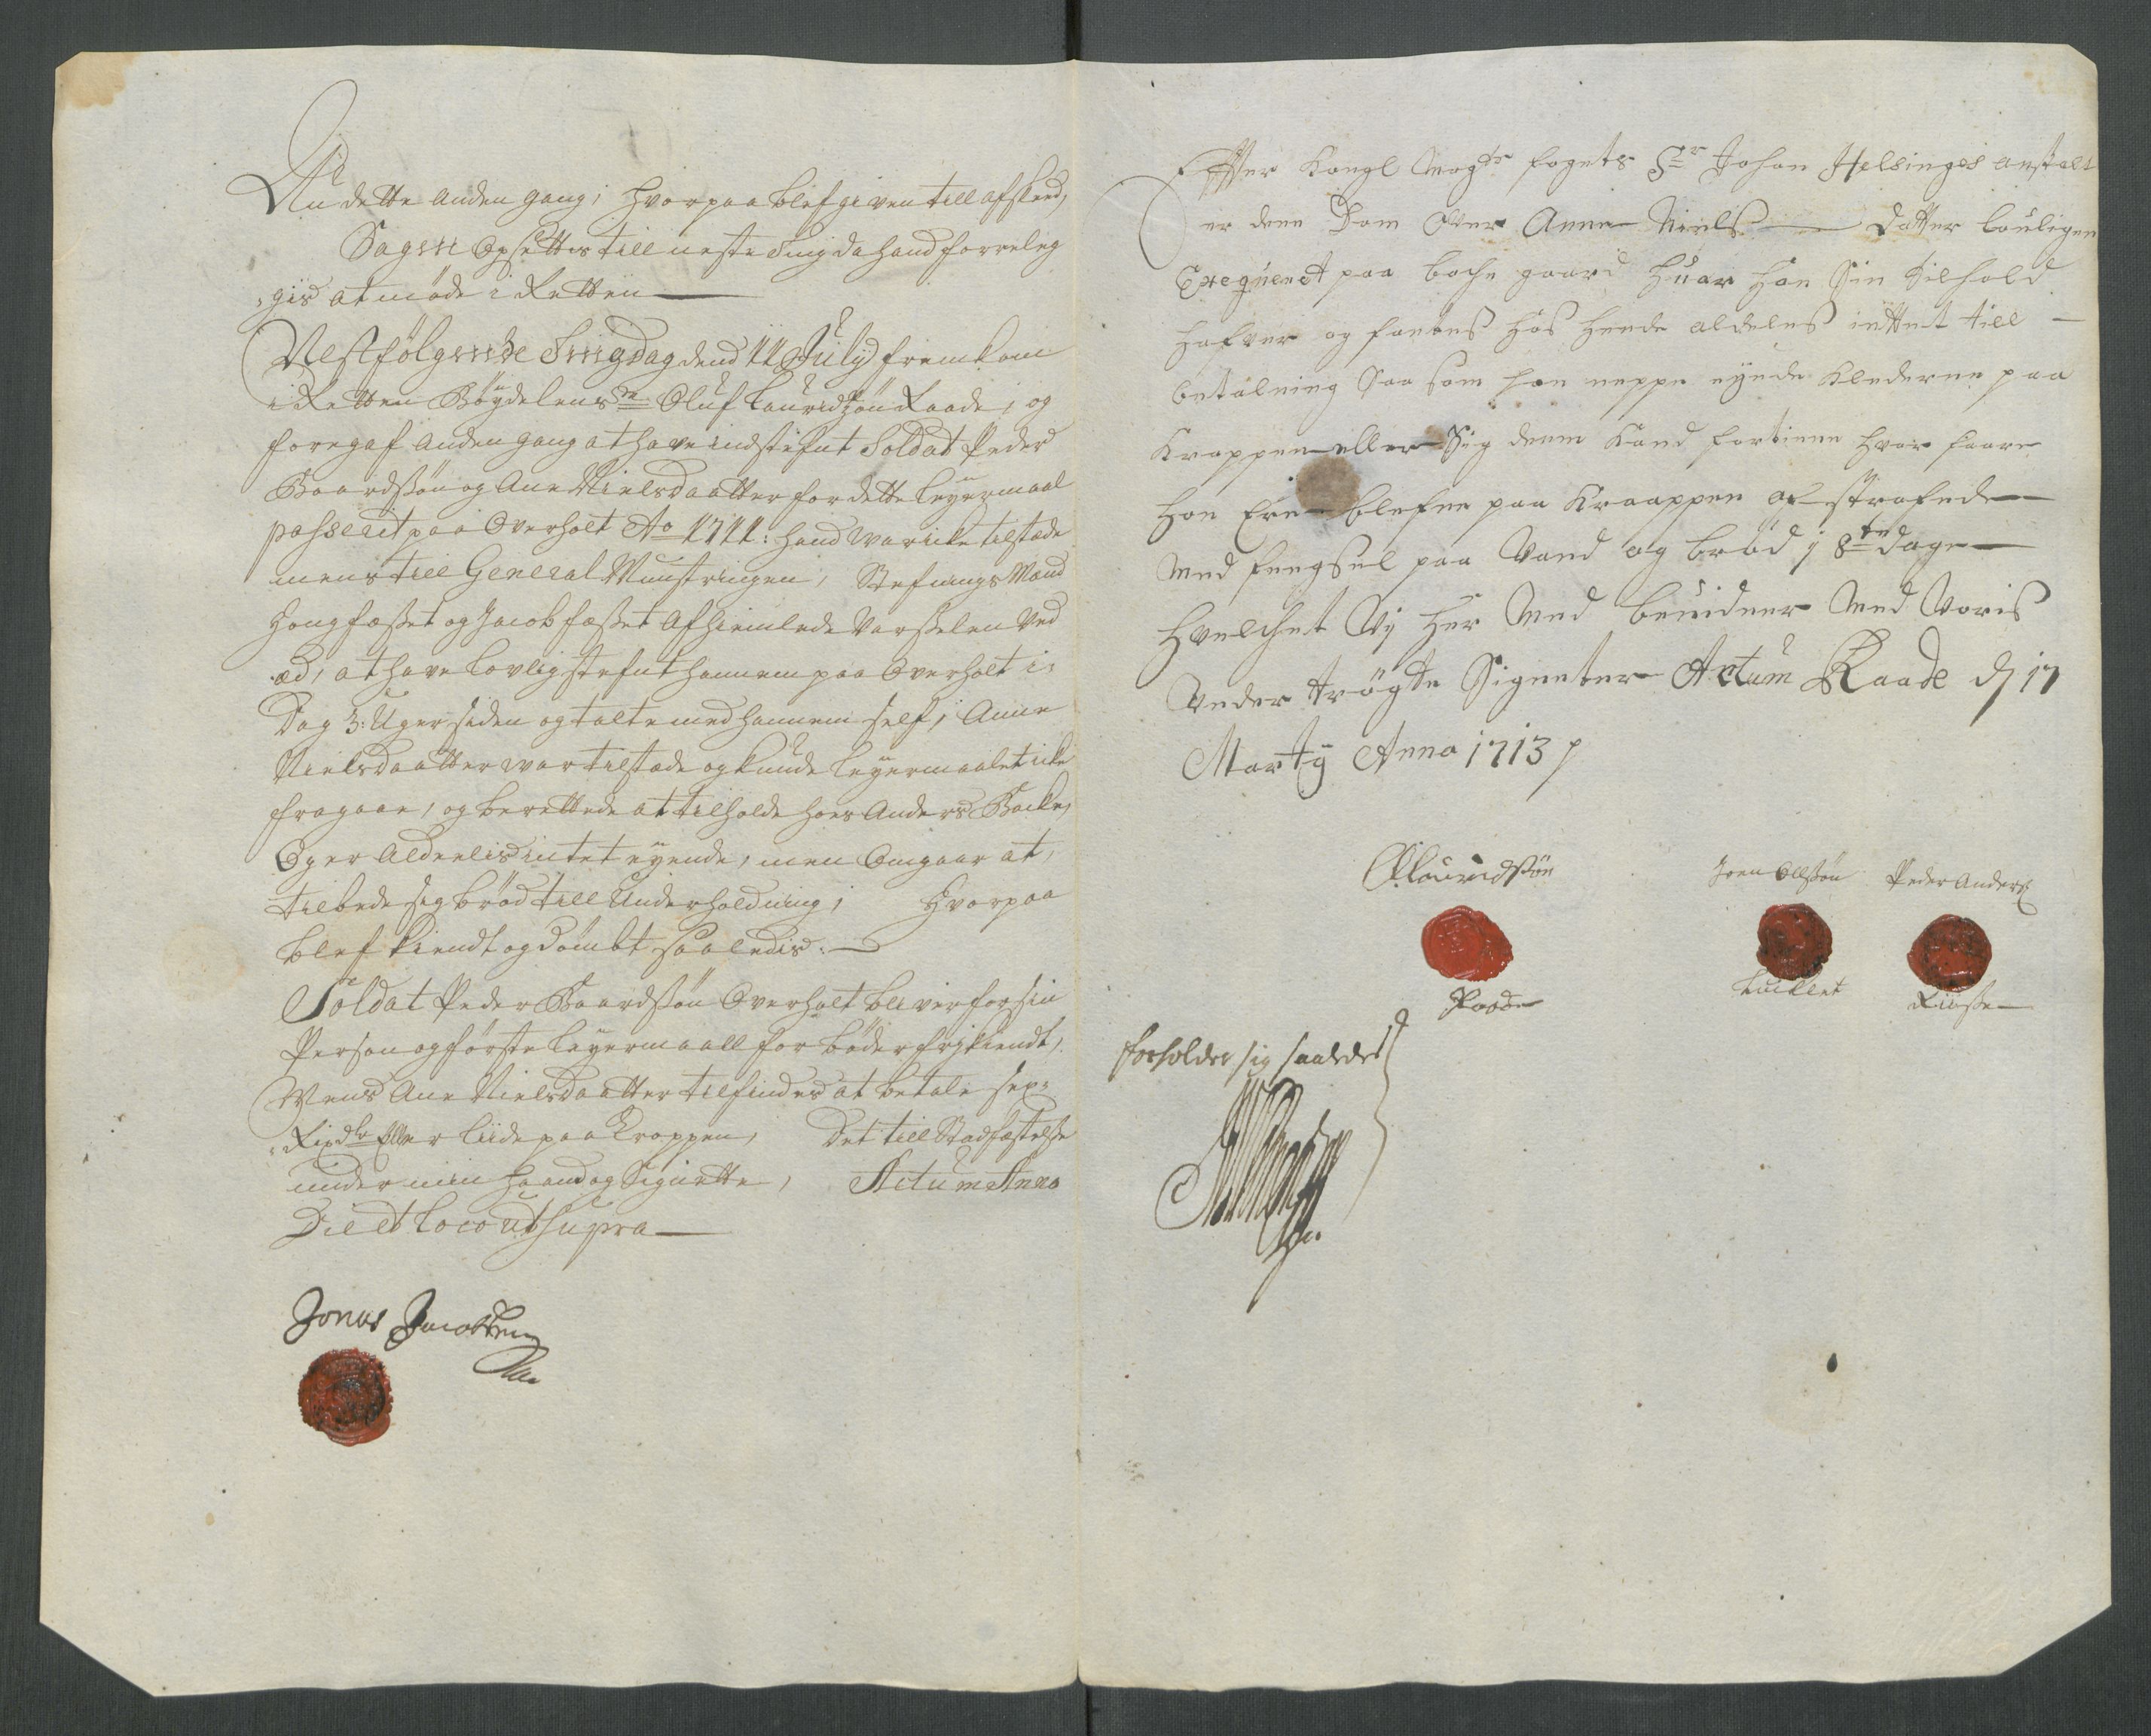 Nu dette anden gang, hvorpaa blef given till afskeed,
Sagen Opsettis till neste Ting da hand forreleg
gis at møde i Retten
Nestfølgende Tingdag dend 11 July fremkom
i Retten Bøydelens Oluf Lauridsøn Raade, og
foregaf anden gang at have indstefnt Soldat Peder
Baardsøn og Ane Nielsdaatter for dette leyermaal
passerit paa Overholt Ao 1711: hand war icke tilstæde
mens till General Munstringen, Stefnings Mænd
og Jacob afhiemlede Varsselen ved
æd, at have lovlig stefnt hannem paa Overholt i
Dag 3: Uger siden og talte med hannem self, Anne
Nielsdaatter war tilstæde og kunde leyermaalet icke
fragaae, og berettede at tilholde hoes Anders Backe,
Og er Aldeelis intet eyende, men Omgaar at
tilbede sig brød till Underholdning, Hvorpaa
blef kiendt og dømbt saaledis.
Soldat Peder Baardsøn Overholt bliver for sin
Person og første leyermaall for bøder frj kiendt,
Mens Ane Nielsdaatter tilfindes at betale sex
Rixdlr Eller liide paa Kroppen, Det till Stadfæstelse
under min haand og Signette, Actum Anno
Die et loco ut supra
Jonas Jacobsen
Effter Kongl Mayts fogets Sr Johan Helsinges anstalt
er denne Dom over Anne Niels Datter louligen
Exequeret paa backe gaard huor hun Sin tilhold
hafver og fandes hos hende aldeles inttet till
betalning Saa som hon neppe eyede Klederne paa
Kroppen eller Sig dem Kand fortiene hvor faare
hon Er blefven paa Kraappen af straffede
med fengsel paa Vand og brød j 8te dage
hvelchet Vij her med beuidner med Voris
under trøgte Signeter Actum Raade d 17
Marty Anno 1713
O Lauridsøn
Joen Olssøn Peder Anders
Raade
Lucklet
forholder sig saaledes